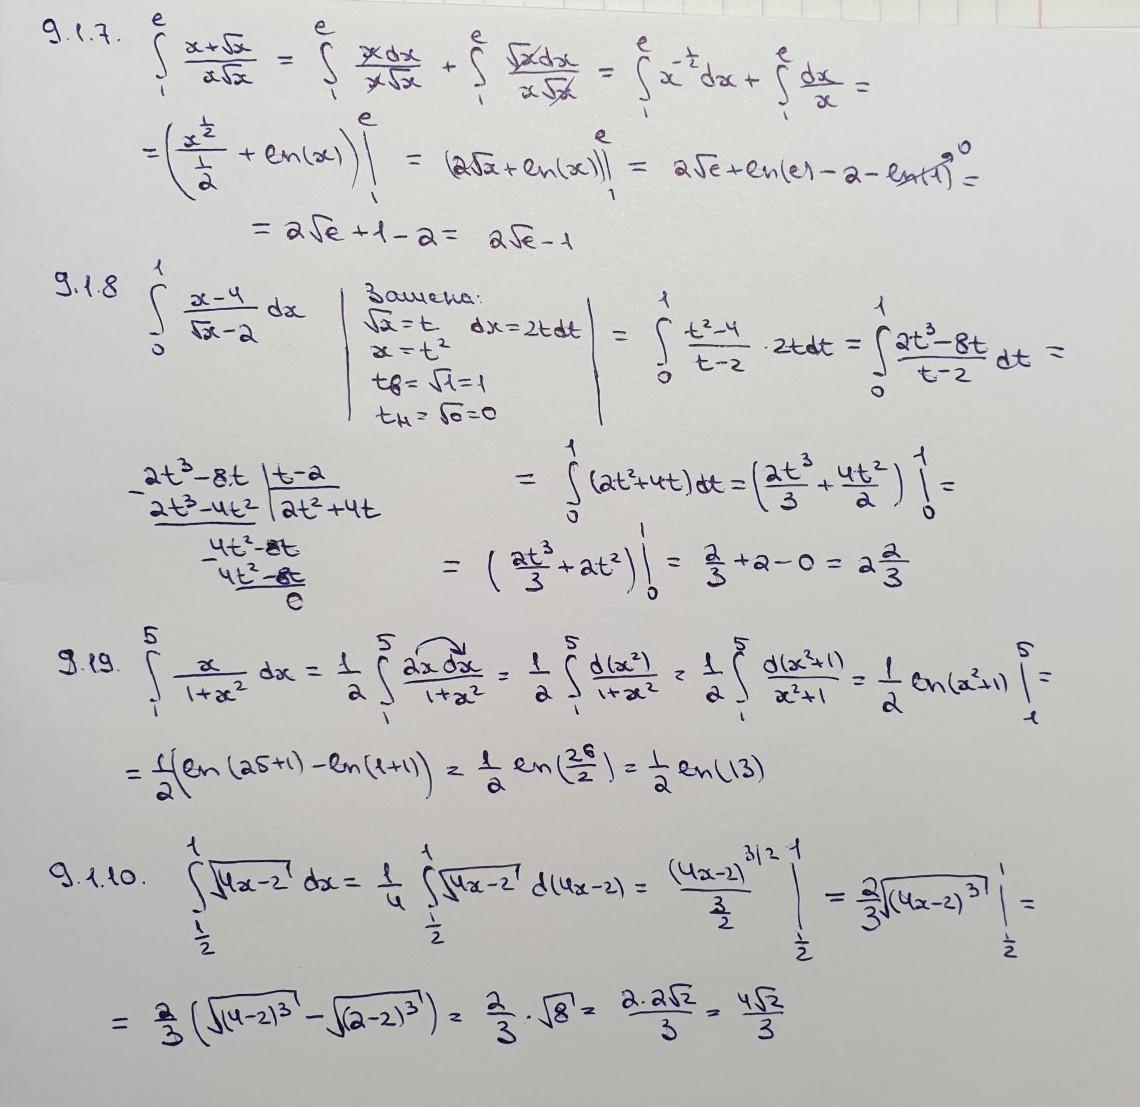 9.1.7. ∫₁ᵉ (x+√x)/(x√x) = ∫₁ᵉ xdx/(x√x) + ∫₁ᵉ √xdx/(x√x) = ∫₁ᵉ x^(-1/2) dx + ∫₁ᵉ dx/x =
= (x^(1/2)/(1/2) + ln(x)) |₁ᵉ = (2√x + ln(x)) |₁ᵉ = 2√e + ln(e) - 2 - ln(1)→0 =
= 2√e + 1 - 2 = 2√e - 1
9.1.8 ∫₀¹ (x-4)/(√x-2) dx | Замена: √x = t dx = 2tdt x = t² tв = √1 = 1 tн = √0 = 0 | = ∫₀¹ (t²-4)/(t-2) · 2tdt = ∫₀¹ (2t³-8t)/(t-2) dt =
2t³-8t | t-2
- 2t³-4t² | 2t²+4t
4t²-8t
- 4t²-8t
0
= ∫₀¹ (2t²+4t) dt = (2t³/3 + 4t²/2) |₀¹ =
= (2t³/3 + 2t²) |₀¹ = 2/3 + 2 - 0 = 2 2/3
9.19. ∫₁⁵ x/(1+x²) dx = 1/2 ∫₁⁵ 2x dx/(1+x²) = 1/2 ∫₁⁵ d(x²)/(1+x²) = 1/2 ∫₁⁵ d(x²+1)/(x²+1) = 1/2 ln(x²+1) |₁⁵ =
= 1/2 (ln(25+1) - ln(1+1)) = 1/2 ln(26/2) = 1/2 ln(13)
9.1.10. ∫_(1/2)^1 √(4x-2) dx = 1/4 ∫_(1/2)^1 √(4x-2) d(4x-2) = (4x-2)^(3/2)/(3/2) |_(1/2)^1 = 2/3 √((4x-2)³) |_(1/2)^1 =
= 2/3 (√((4-2)³) - √((2-2)³)) = 2/3 · √8 = 2·2√2/3 = 4√2/3